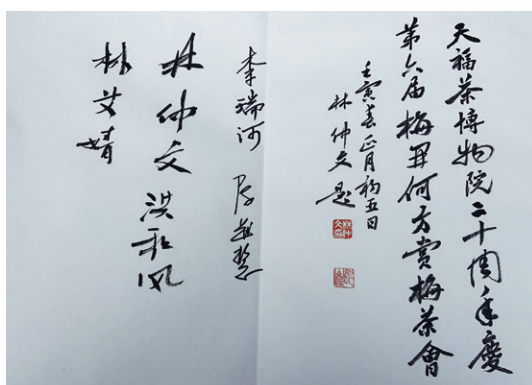 天福茶博物院二十周年慶
第六届梅界何方赏梅茶會
壬寅春正月初五日
林仲文题
李瑞河
林仲文 洪和风
林艾婧